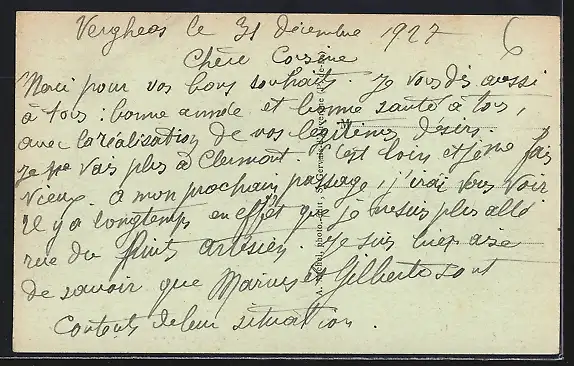 Vergheas le 31 décembre 1927
Chère Cousine
Merci pour vos bons souhaits. Je vous dis aussi
à tous : bonne année et bonne santé à tous,
avec la réalisation de vos légitimes désirs.
Je ne vais plus à Clermont. C'est loin et je me fais
vieux. A mon prochain passage, j'irai vous voir
Il y a longtemps en effet que je ne suis plus allé
rue du Puits Artésien. Je suis bien aise
de savoir que Marius et Gilberte sont
contents de leur situation.